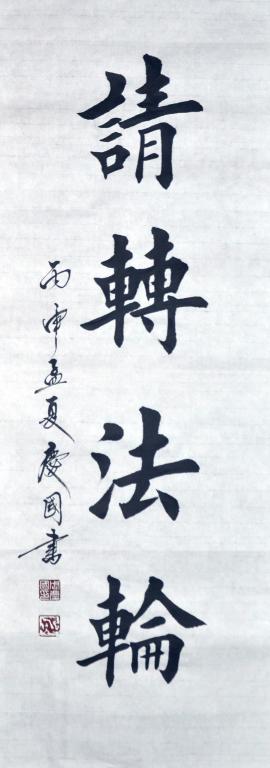 請轉法輪
丙申孟夏慶國書